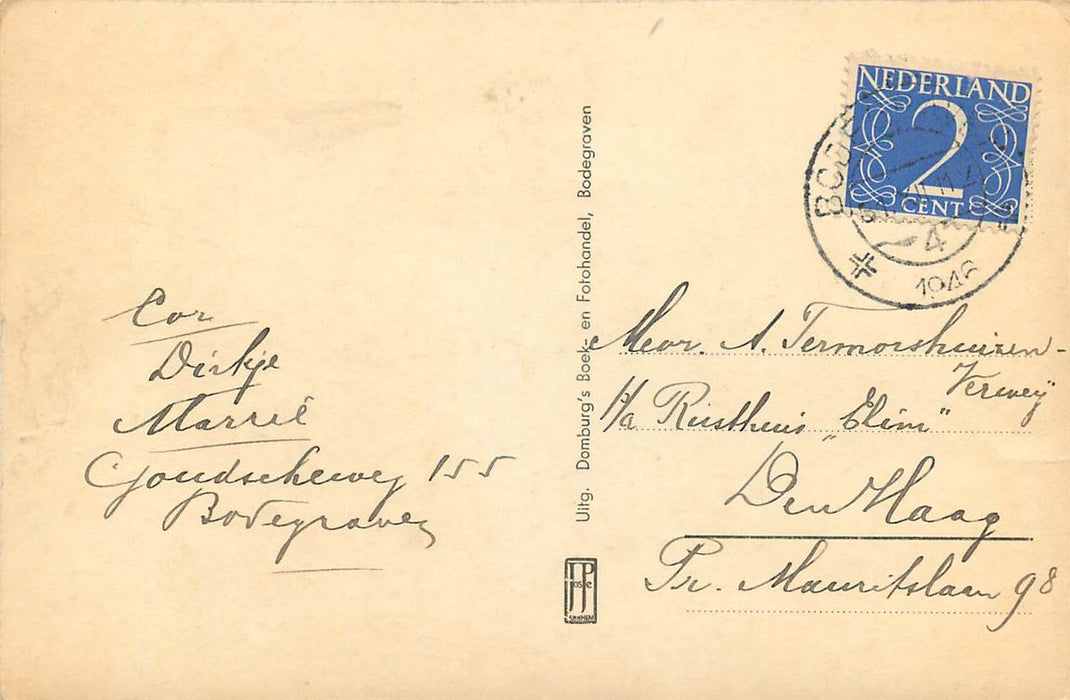 Cor
Dirkje
Marrie
Goudscheweg 155
Bodegraven
Uitg. Domburg's Boek- en Fotohandel, Bodegraven
JP
JosPe
ARNHEM
NEDERLAND
2
CENT
4
1946
Mevr. A. Termorshuizen-
Verweij
P/a Rusthuis „Elim"
Den Haag
Pr. Mauritslaan 98